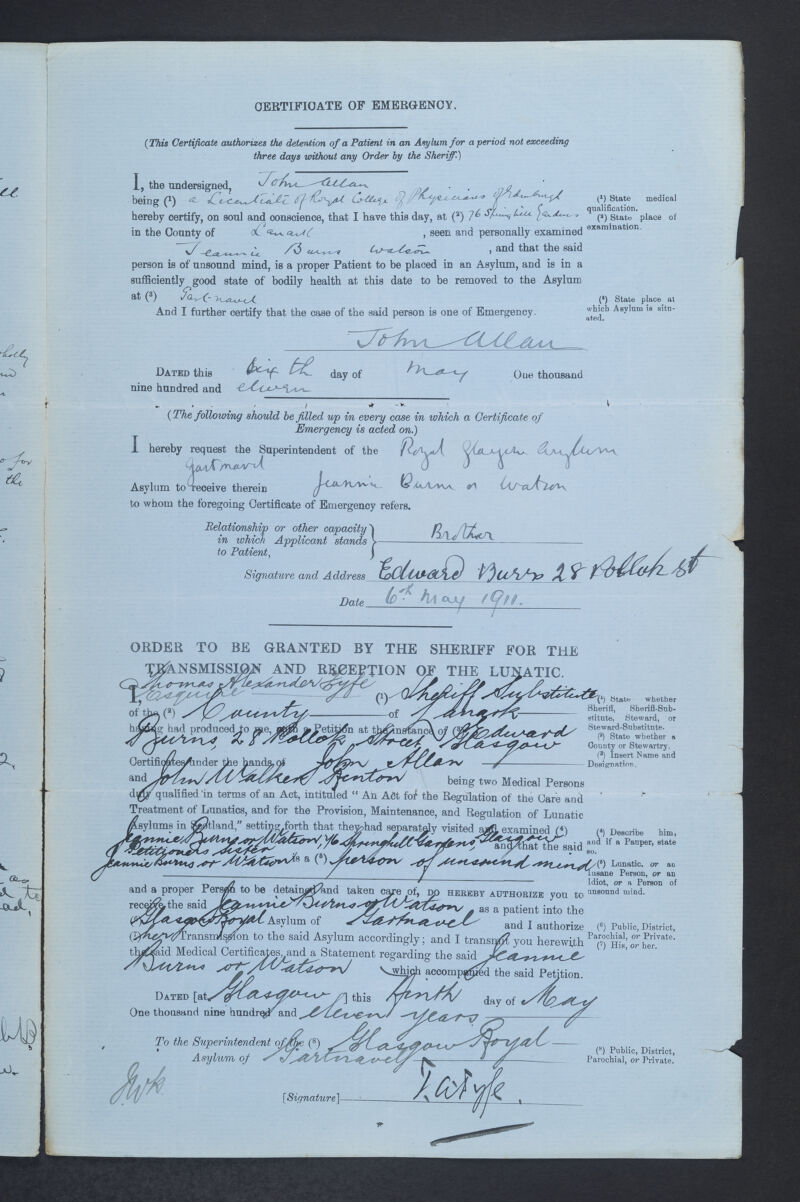 CERTIFICATE OF EMERGENCY.
(This Certificate authorizes the detention of a Patient in an Asylum for a period not exceeding
three days without any Order by the Sheriff.)
I, the undersigned, John Allan
being (1) a Licentiate of Royal College of Physicians of Edinburgh
hereby certify, on soul and conscience, that I have this day, at (2) 76 Springhill Gardens
in the County of Lanark, seen and personally examined
Jeannie Burns Watson, and that the said
person is of unsound mind, is a proper Patient to be placed in an Asylum, and is in a
sufficiently good state of bodily health at this date to be removed to the Asylum
at (3) Gartnavel
And I further certify that the case of the said person is one of Emergency.
(1) State medical
qualification.
(2) State place of
examination.
(3) State place at
which Asylum is situ-
ated.
John Allan
DATED this Sixth day of May One thousand
nine hundred and eleven
(The following should be filled up in every case in which a Certificate of
Emergency is acted on.)
I hereby request the Superintendent of the Royal Glasgow Asylum
Gartnavel
Asylum to receive therein Jeannie Burns or Watson
to whom the foregoing Certificate of Emergency refers.
Relationship or other capacity
in which Applicant stands
to Patient,
Brother
Signature and Address Edward Burns 28 Pollok St
Date 6th May 1911.
ORDER TO BE GRANTED BY THE SHERIFF FOR THE
TRANSMISSION AND RECEPTION OF THE LUNATIC.
Thomas Alexander Fyfe
I, Esquire (1) Sheriff Substitute
of the (2) County of Lanark
having had produced to me, with a Petition at the instance of (3) Edward
Burns, 28 Pollok Street, Glasgow
Certificates under the hands of John Allan
and John Walker Fenton being two Medical Persons
duly qualified in terms of an Act, intituled "An Act for the Regulation of the Care and
Treatment of Lunatics, and for the Provision, Maintenance, and Regulation of Lunatic
Asylums in Scotland," setting forth that they had separately visited and examined (4)
Jeannie Burns or Watson, 76 Springhill Gardens, Glasgow
Petitioners sister and that the said
Jeannie Burns or Watson is a (5) person of unsound mind
and a proper Person to be detained and taken care of, DO HEREBY AUTHORIZE you to
receive the said Jeannie Burns or Watson as a patient into the
(6) Glasgow Royal Asylum of Gartnavel and I authorize
(7) her Transmission to the said Asylum accordingly; and I transmit you herewith
the said Medical Certificates, and a Statement regarding the said Jeannie
Burns or Watson which accompanied the said Petition.
(1) State whether
Sheriff, Sheriff-Sub-
stitute, Steward, or
Steward-Substitute.
(2) State whether a
County or Stewartry.
(3) Insert Name and
Designation.
(4) Describe him,
and if a Pauper, state
so.
(5) Lunatic, or an
Insane Person, or an
Idiot, or a Person of
unsound mind.
(6) Public, District,
Parochial, or Private.
(7) His, or her.
DATED [at Glasgow] this Ninth day of May
One thousand nine hundred and eleven years
To the Superintendent of the (8) Glasgow Royal
Asylum of Gartnavel
(8) Public, District,
Parochial, or Private.
[Signature] T. A. Fyfe.